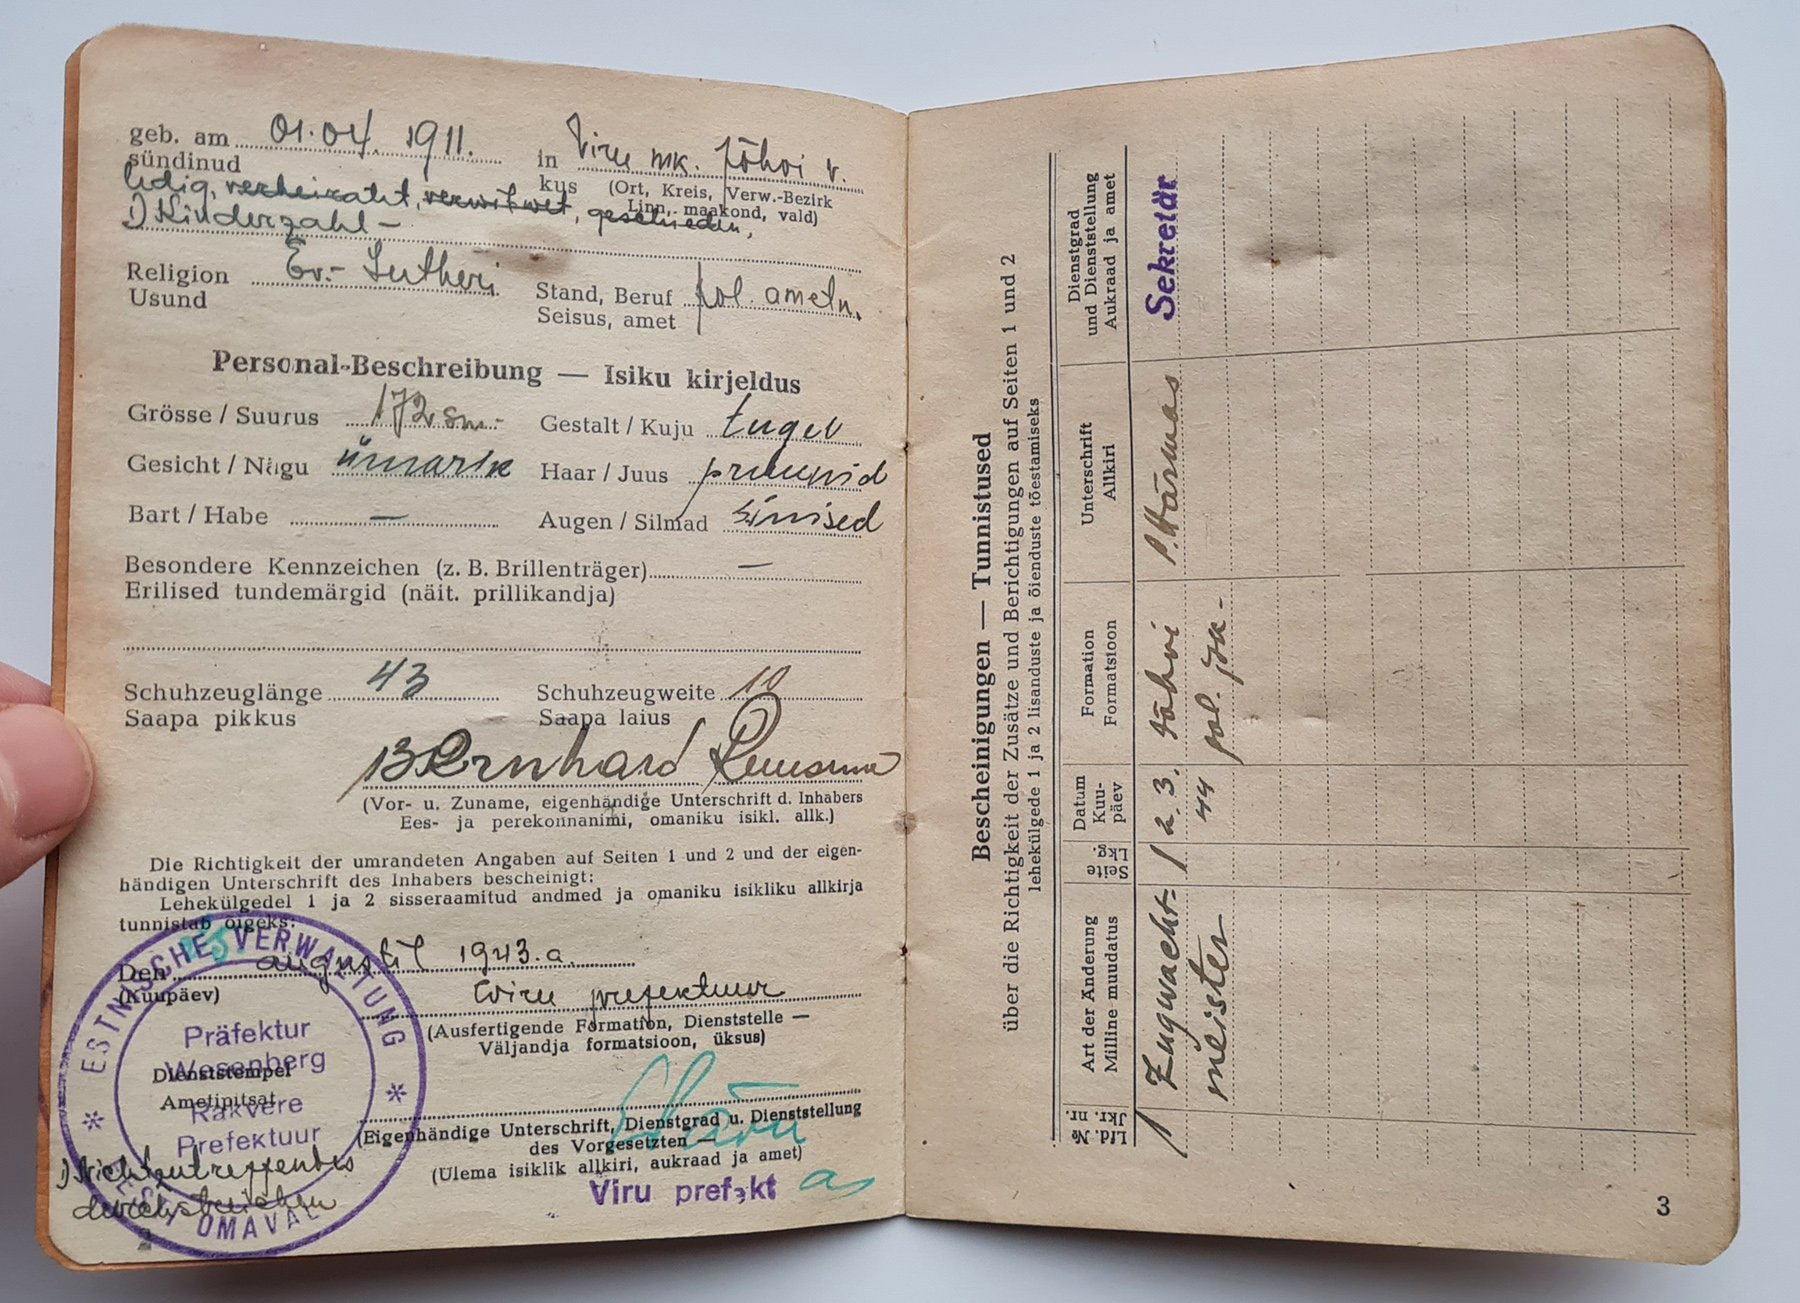 geb. am 01.04. 1911. in Viru mk. Jõhvi v.
sündinud kus (Ort, Kreis, Verw.-Bezirk
Linn, maakond, vald)
ledig, verheiratet, verwitwet, geschieden,
1) Kinderzahl –
Religion Ev.- Lutheri Stand, Beruf pol. ametn.
Usund Seisus, amet
Personal-Beschreibung — Isiku kirjeldus
Grösse / Suurus 172 sm.- Gestalt / Kuju tugev
Gesicht / Nägu ümarik Haar / Juus pruunid
Bart / Habe — Augen / Silmad sinised
Besondere Kennzeichen (z. B. Brillenträger) —
Erilised tundemärgid (näit. prillikandja)
Schuhzeuglänge 43 Schuhzeugweite 10
Saapa pikkus Saapa laius
Bernhard
(Vor- u. Zuname, eigenhändige Unterschrift d. Inhabers
Ees- ja perekonnanimi, omaniku isikl. allk.)
Die Richtigkeit der umrandeten Angaben auf Seiten 1 und 2 und der eigen-
händigen Unterschrift des Inhabers bescheinigt:
Lehekülgedel 1 ja 2 sisseraamitud andmed ja omaniku isikliku allkirja
tunnistab õigeks:
Den augustil 1943.a.
(Kuupäev)
Viru prefektuur
(Ausfertigende Formation, Dienststelle —
Väljandja formatsioon, üksus)
ESTNISCHE VERWALTUNG
Präfektur
Wesenberg
Dienststempel
Ametipitsat
Rakvere
Prefektuur
EESTI OMAVAL
(Eigenhändige Unterschrift, Dienstgrad u. Dienststellung
des Vorgesetzten —
(Ülema isiklik allkiri, aukraad ja amet)
Viru prefekt
1) Nichtzutreffendes
durchstreichen
2
Bescheinigungen — Tunnistused
über die Richtigkeit der Zusätze und Berichtigungen auf Seiten 1 und 2
lehekülgede 1 ja 2 lisanduste ja õienduste tõestamiseks
Lfd. № Art der Änderung Seite Datum Formation Unterschrift Dienstgrad
Jkr. nr. Milline muudatus Lkg. Kuu- Formatsioon Allkiri und Dienststellung
päev Aukraad ja amet
1 Zugwacht= 1 2.3. Jõhvi P. Härmas Sekretär
meister 44 pol. jsk-
3